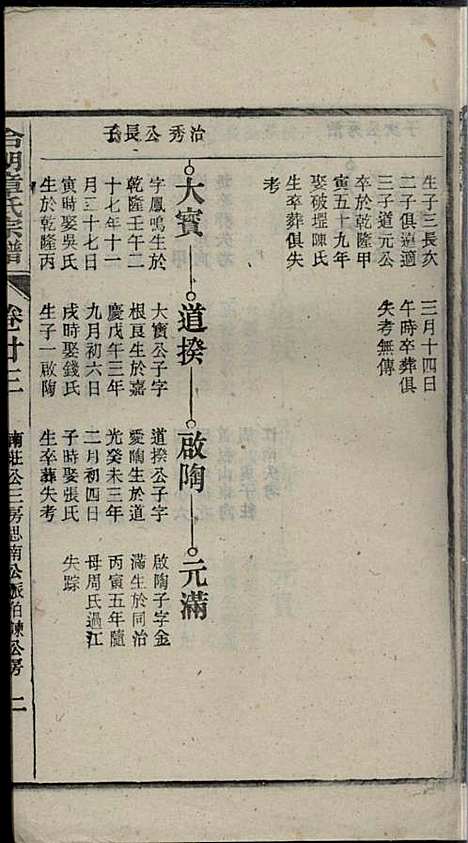 生子三長次
二子俱遠適
三子道元公
卒於乾隆甲
寅五十九年
娶破堽陳氏
生卒葬俱失
考
三月十四日
午時卒葬俱
失考無傳
治秀公長子
大賓 道揆 啟陶 元滿
字鳳鳴生於
乾隆壬午二
十七年十一
月二十七日
寅時娶吳氏
生於乾隆丙
大賓公子字
根艮生於嘉
慶戊午三年
九月初六日
戌時娶錢氏
生子一啟陶
道揆公子字
愛陶生於道
光癸未三年
二月初四日
子時娶張氏
生卒葬失考
啟陶子字金
滿生於同治
丙寅五年隨
母周氏過江
失踪
氏宗譜
卷廿二
南莊公三房思南公派伯諫公房
二